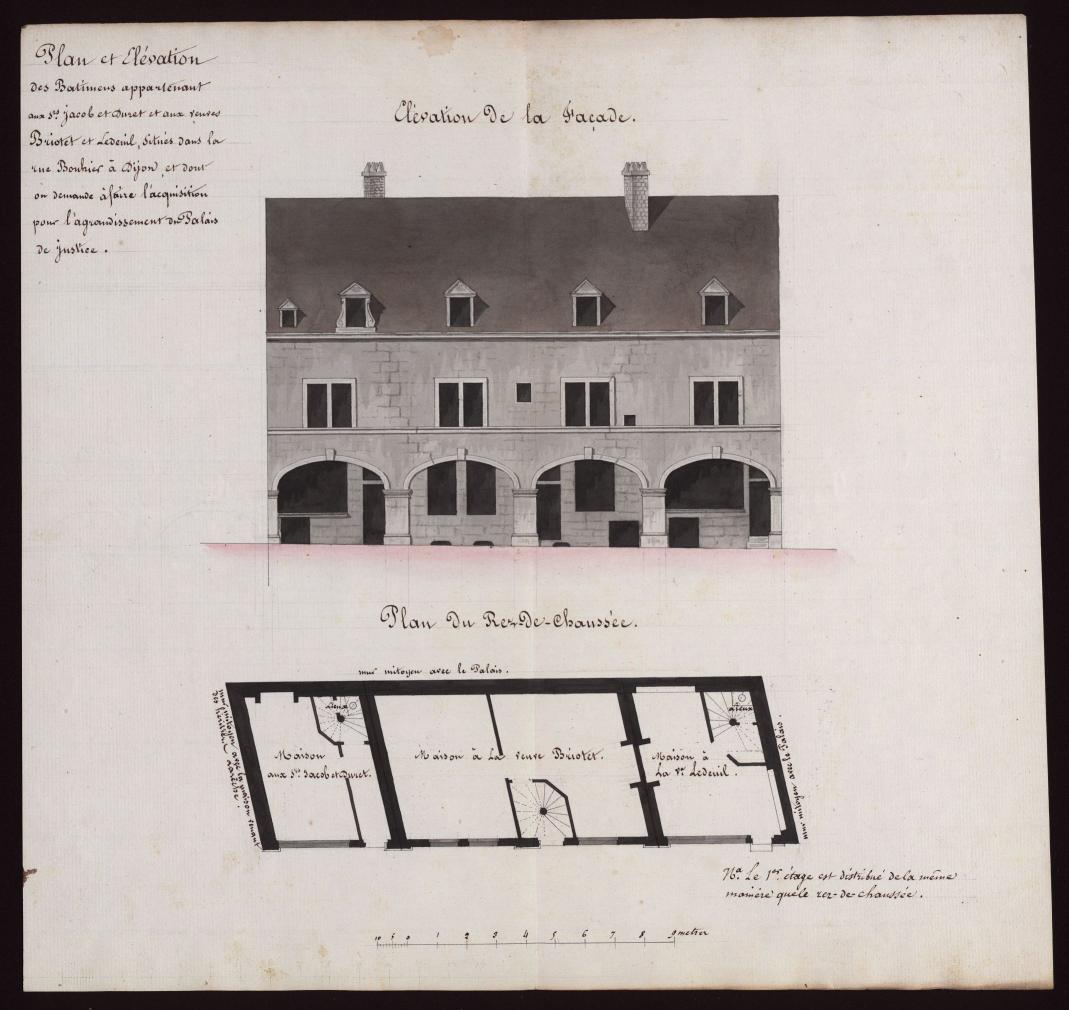 Plan et Elévation
des Batimens appartenant
aux Srs. Jacob et Duret et aux veuves
Briotet et Ledeuil, Situés dans la
rue Bouhier à Dijon, et dont
on demande à faire l'acquisition
pour l'agrandissement du Palais
de Justice.
Elévation De la Façade.
Plan Du Rez-De-Chaussée.
mur mitoyen avec le Palais.
mur mitoyen avec la maison venant
des héritiers
Lieux
Lieux
Maison
aux Srs. Jacob et Duret.
Maison à La veuve Briotet.
Maison à
La Ve. Ledeuil.
mur mitoyen avec le Palais.
Na. Le 1er. étage est distribué de la même
manière que le rez-de-chaussée.
10 5 0 1 2 3 4 5 6 7 8 9 metres